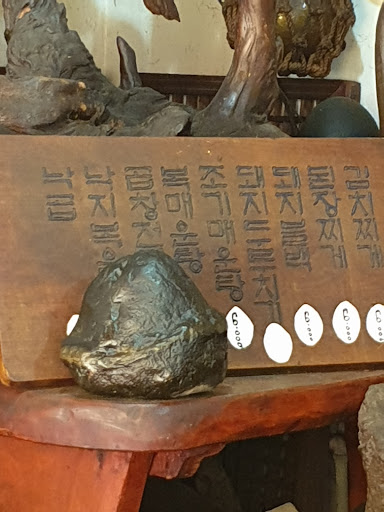 김치찌게
된장찌게
돼지불백
돼지두루치기
조기매운탕
복매운탕
곱창전
낙지볶
낙곱